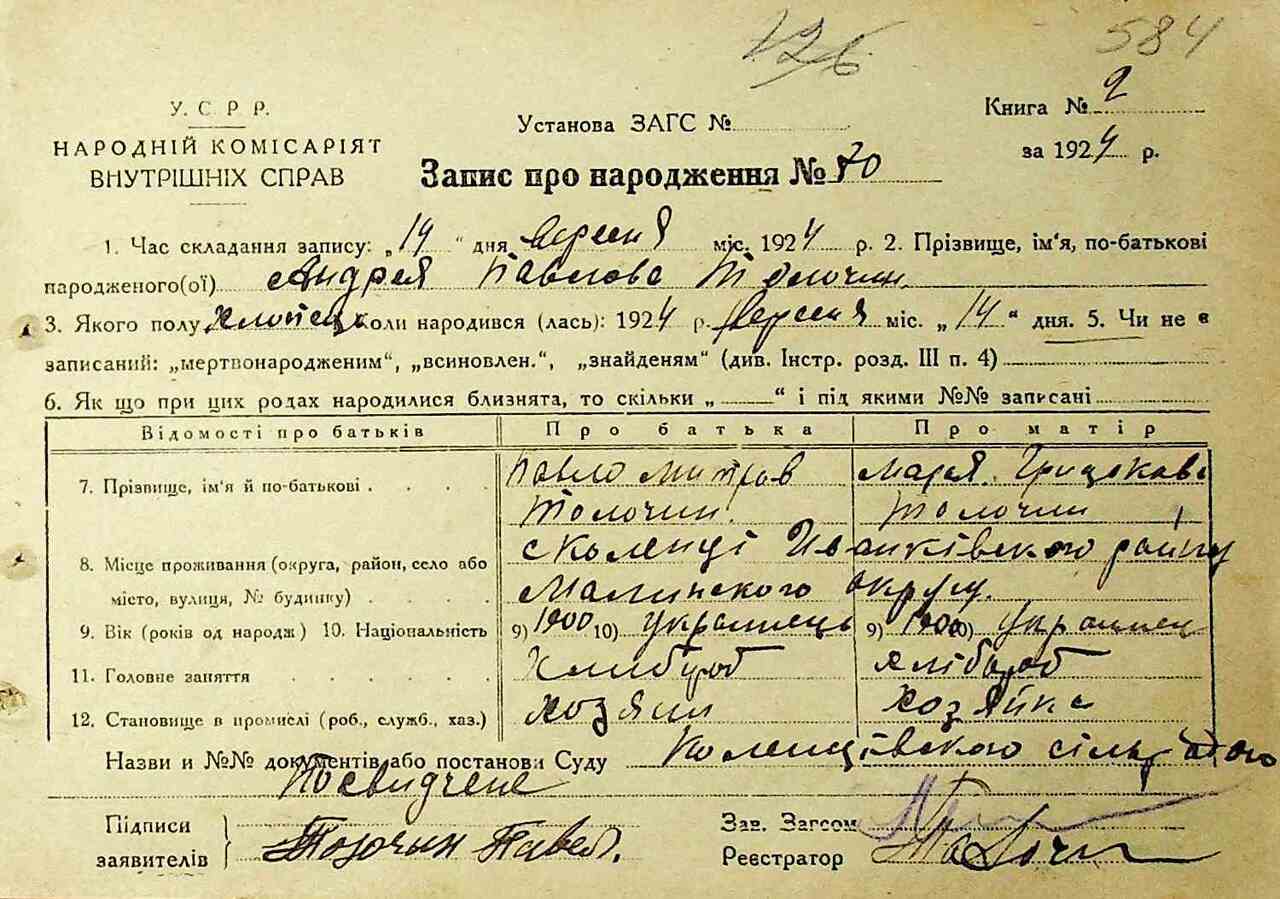 126 584
У. С. Р. Р.
НАРОДНІЙ КОМІСАРІЯТ
ВНУТРІШНІХ СПРАВ
Установа ЗАГС №
Книга № 2
за 1924 р.
Запис про народження № 70
1. Час складання запису: „14“ дня вересня міс. 1924 р. 2. Прізвище, ім‘я, по-батькові
народженого(ої) Андрея Павлова Толочин
3. Якого полу хлопець коли народився (лась): 1924 р. вересня міс. „14“ дня. 5. Чи не є
записаний: „мертвонародженим“, „всиновлен.“, „знайденям“ (див. Інстр. розд. III п. 4)
6. Як що при цих родах народилися близнята, то скільки „ “ і під якими №№ записані
Відомості про батьків Про батька Про матір
7. Прізвище, ім‘я й по-батькові . . . . Павло Митров Марея Грицкова
Толочин. Толочин
8. Місце проживання (округа, район, село або с Коленці Иванківского району
місто, вулиця, № будинку) . . . . Малинского округу.
9. Вік (років од народж) 10. Національність 9) 1900 10) Украинець 9) 1900 10) Украинец
11. Головне заняття . . . . . . Хлибороб хлібороб
12. Становище в промислі (роб., служб., хаз.) хозяин хозяйка
Назви и №№ документів або постанови Суду Коленцівского сільради
Посвидчене
Підписи
заявителів Толочин Павел.
Зав. Загсом
Реєстратор